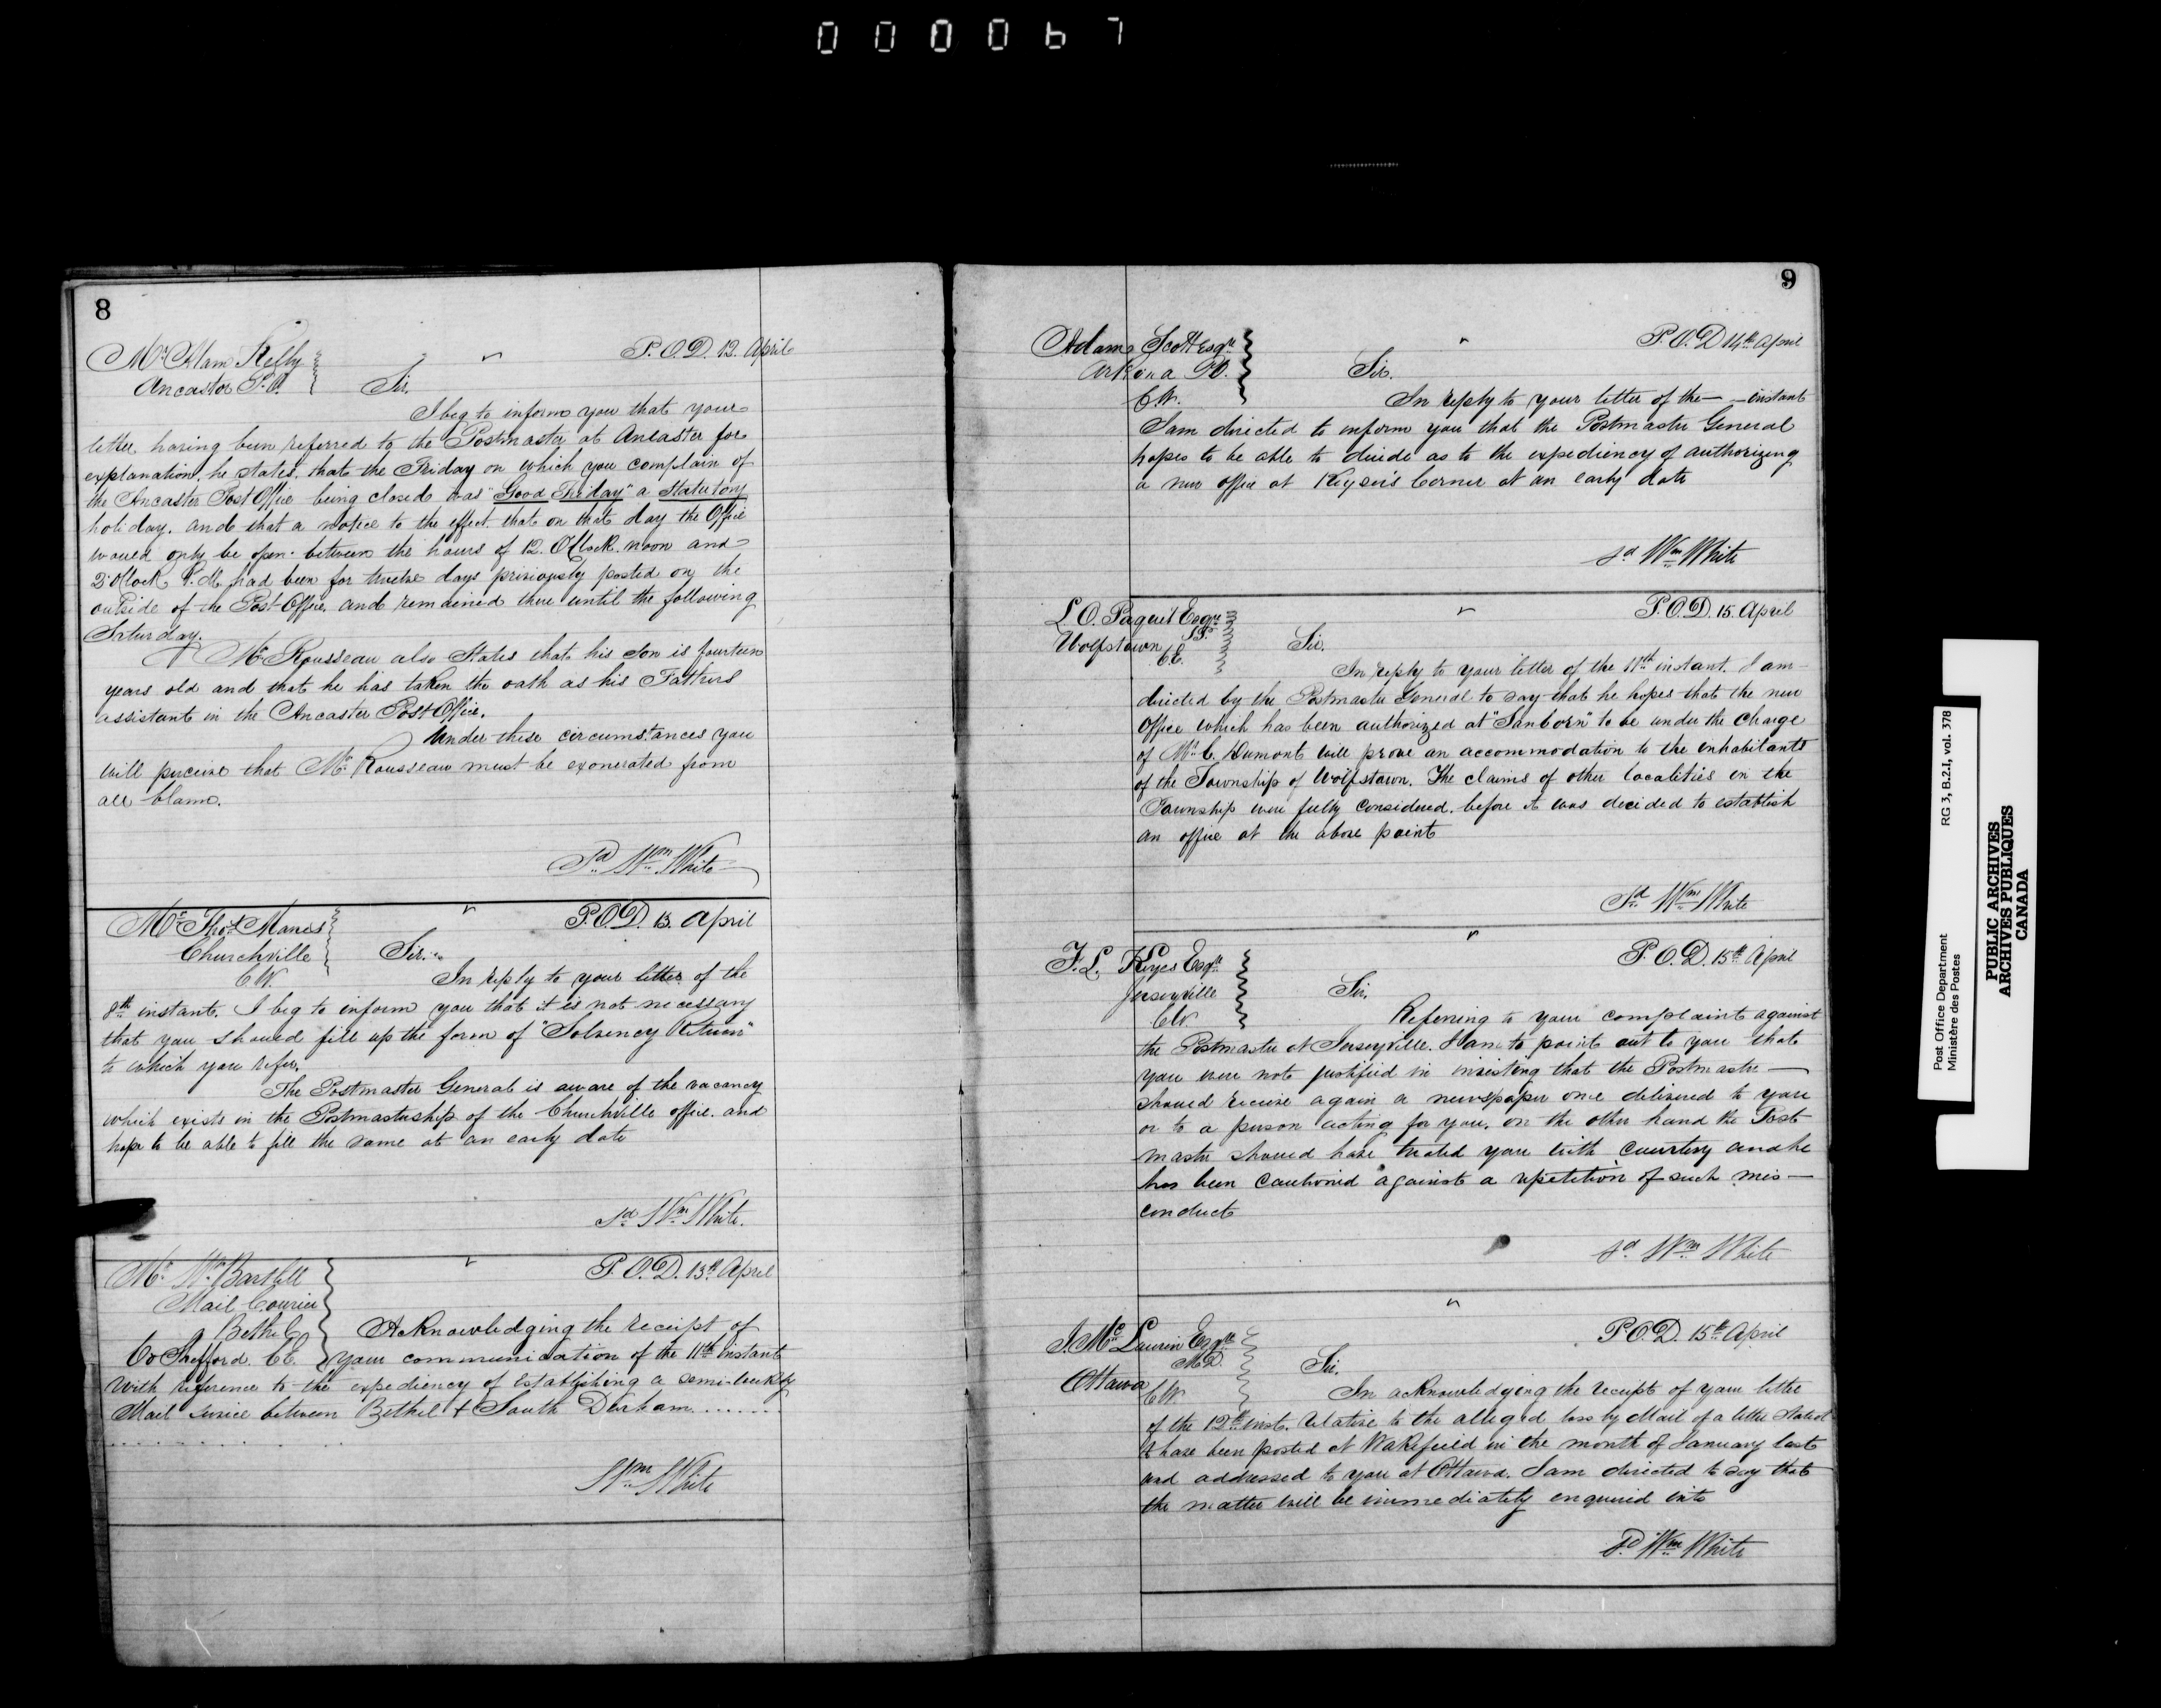 000067
8
Mr. Adam Kelly
Ancaster P.O.
P.O.D. 12. April
Sir.
I beg to inform you that your
letter having been referred to the Postmaster at Ancaster for
explanation, he states, that the Friday on which you complain of
the Ancaster Post Office being closed was "Good Friday" a Statutory
holiday. and that a notice to the effect that on that day the Office
would only be open between the hours of 12. O'Clock. noon and
2 O'Clock P.M. had been for twelve days previously posted on the
outside of the Post Office, and remained there until the following
Saturday.
Mr. Rousseau also States that his Son is fourteen
years old and that he has taken the oath as his Fathers
assistant in the Ancaster Post Office.
Under these circumstances you
will perceive that Mr. Rousseau must be exonerated from
all blame.
Sd. Wm. White
Mr. Thos. Maness
Churchville
C.W.
P.O.D. 13. April
Sir.
In reply to your letter of the
8th instant. I beg to inform you that it is not necessary
that you should fill up the form of "Solvency Return"
to which you refer.
The Postmaster General is aware of the vacancy
which exists in the Postmastership of the Churchville office. and
hope to be able to fill the same at an early date
Sd. Wm. White.
Mr. Wm. Bartlett
Mail Courier
Bethel
Co Shefford. C.E.
P.O.D. 13th April
Acknowledging the receipt of
your communication of the 11th instant
with reference to the expediency of establishing a semi-weekly
Mail service between Bethel & South Durham........
Wm. White
9
Adam Scott Esqre
Arkona P.O.
C.W.
P.O.D 14th April
Sir.
In reply to your letter of the — instant
I am directed to inform you that the Postmaster General
hopes to be able to decide as to the expediency of authorizing
a new office at Keyser's Corner at an early date
Sd Wm White
L.O. Paquet Esqre
J.P.
Wolfstown
C.E.
P.O.D. 15. April
Sir.
In reply to your letter of the 11th instant. I am
directed by the Postmaster General to say that he hopes that the new
Office which has been authorized at "Sanborn" to be under the Charge
of Mr. C. Dumont will prove an accommodation to the inhabitants
of the Township of Wolfstown. The claims of other localities in the
Township were fully considered. before it was decided to establish
an office at the above point
Sd. Wm White
F.L. Keyes Esqre
Jerseyville
C.W.
P.O.D. 15th April
Sir.
Refering to your complaint against
the Postmaster at Jerseyville. I am to point out to you that
you were not justified in insisting that the Postmaster —
should receive again a newspaper once delivered to you
or to a person acting for you. on the other hand the Post
master should have treated you with courtesy and he
has been cautioned against a repetition of such mis —
conduct
Sd Wm White
J. McLaurin Esqre
M.D.
Ottawa
C.W.
P.O.D. 15th April
Sir.
In acknowledging the receipt of your letter
of the 12th inst. relative to the alleged loss by Mail of a letter stated
to have been posted at Wakefield in the month of January last
and addressed to you at Ottawa. I am directed to say that
the matter will be immediately enquired into
Sd. Wm White
Post Office Department
Ministère des Postes
RG 3, B.2.I, vol. 378
PUBLIC ARCHIVES
ARCHIVES PUBLIQUES
CANADA